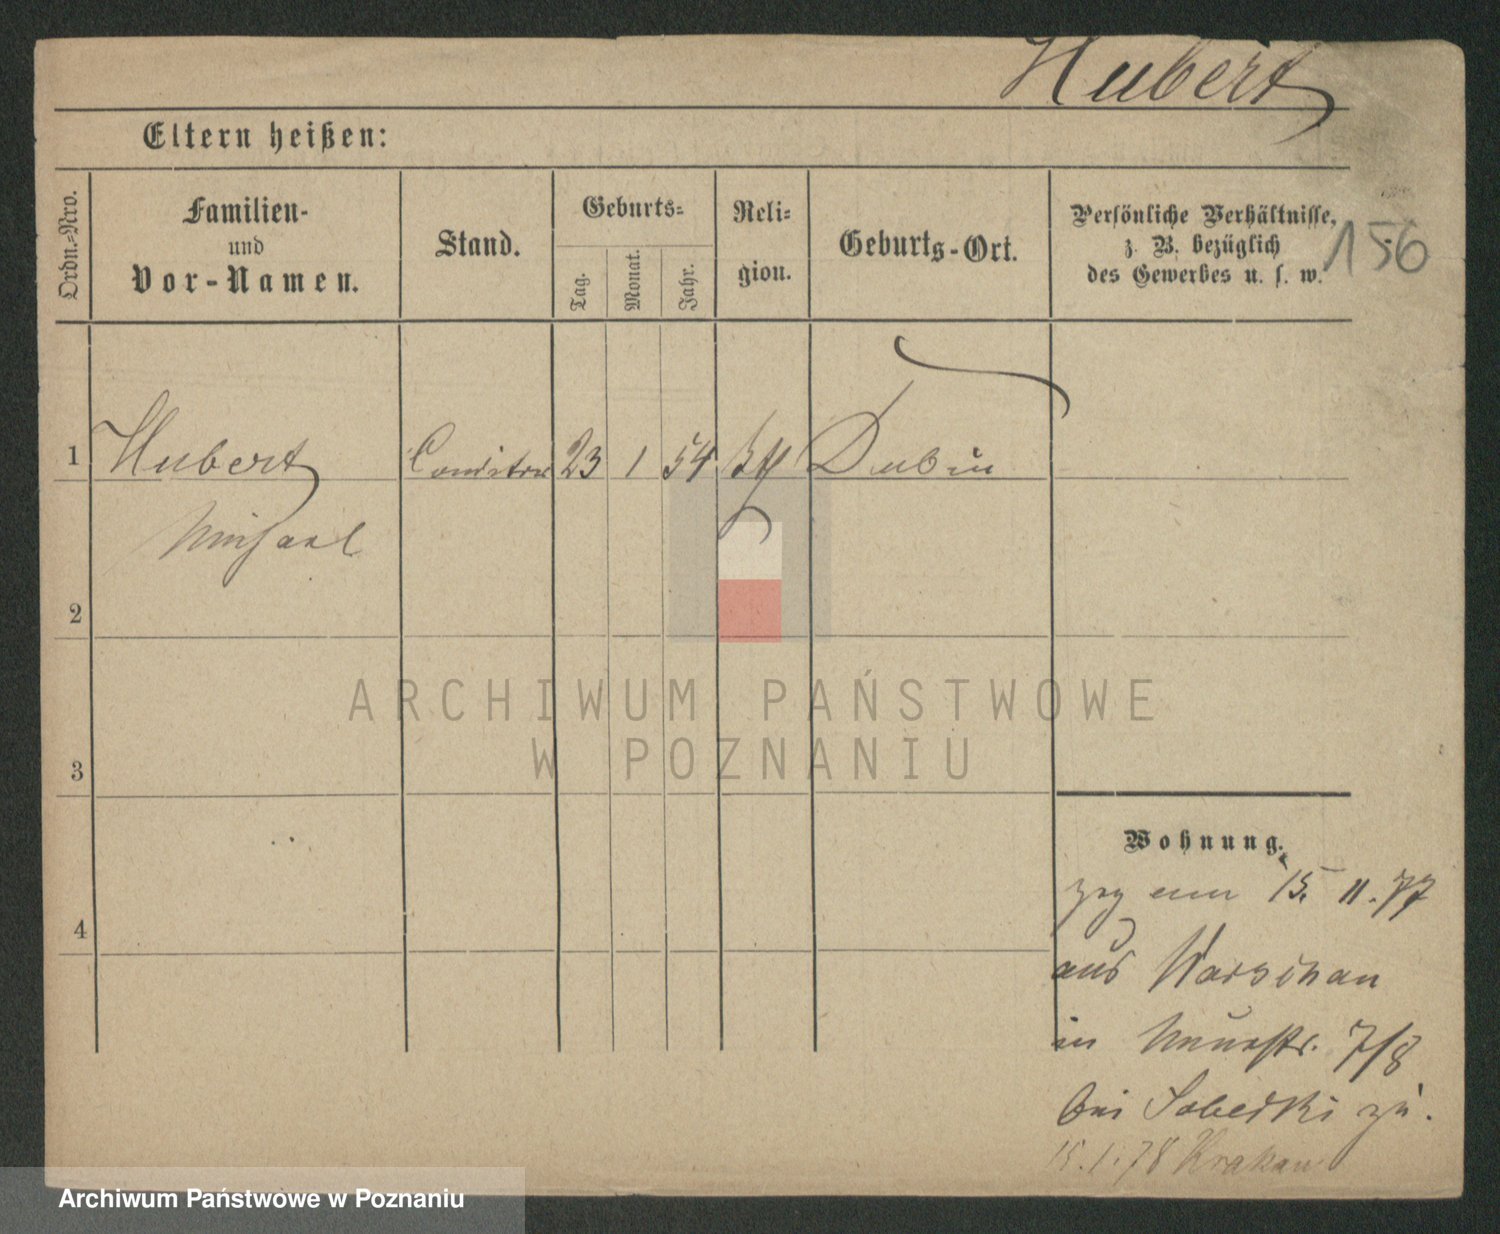 Hubert
Eltern heißen:
Ordn.-Nro.
Familien-
und
Vor-Namen.
Stand.
Geburts-
Tag.
Monat.
Jahr.
Reli-
gion.
Geburts-Ort.
Persönliche Verhältnisse,
z. B. bezüglich
des Gewerbes u. s. w.
156
1 Hubert Conditor 23 1 54 kth Dubin
Michael
2
3
4
ARCHIWUM PAŃSTWOWE
W POZNANIU
Wohnung.
zog am 15. 11. 77
aus Warschau
in Neuestr. 7/8
bei Sobecki zu.
15.1.78 Krakau
Archiwum Państwowe w Poznaniu